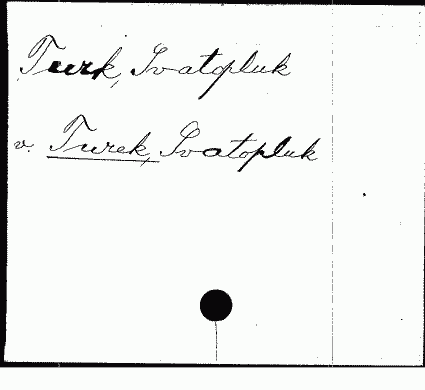 Turk, Svatopluk
v. Turek, Svatopluk